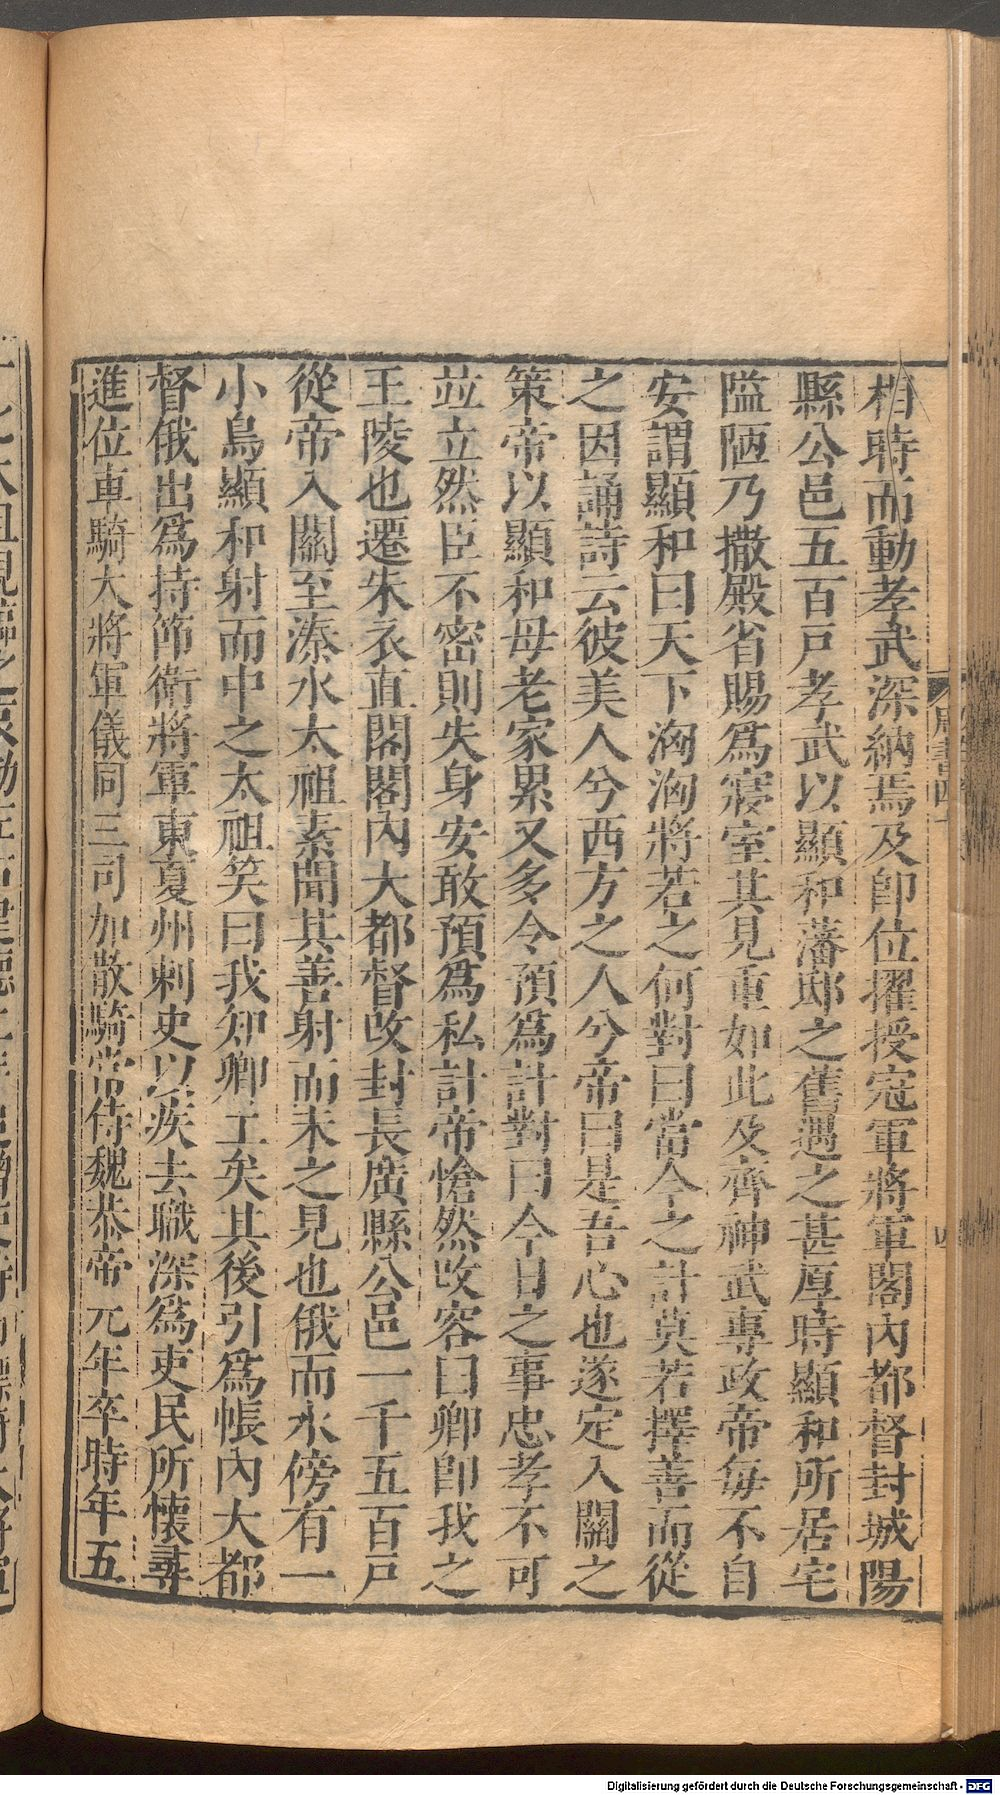 相時而動孝武深納焉及即位擢授冠軍將軍閤內都督封城陽
縣公邑五百戸孝武以顯和藩邸之舊遇之甚厚時顯和所居宅
隘陋乃撤殿省賜爲寢室其見重如此及齊神武專政帝每不自
安謂顯和曰天下洶洶將若之何對曰當今之計莫若擇善而從
之因誦詩云彼美人兮西方之人兮帝曰是吾心也遂定入關之
策帝以顯和母老家累又多令預爲計對曰今日之事忠孝不可
竝立然臣不密則失身安敢預爲私計帝愴然改容曰卿即我之
王陵也遷朱衣直閤閤內大都督改封長廣縣公邑一千五百戸
從帝入關至溱水太祖素聞其善射而未之見也俄而水傍有一
小鳥顯和射而中之太祖笑曰我知卿工矣其後引爲帳內大都
督俄出爲持節衛將軍東夏州刺史以疾去職深爲吏民所懷尋
進位車騎大將軍儀同三司加散騎常侍魏恭帝元年卒時年五
Digitalisierung gefördert durch die Deutsche Forschungsgemeinschaft - DFG